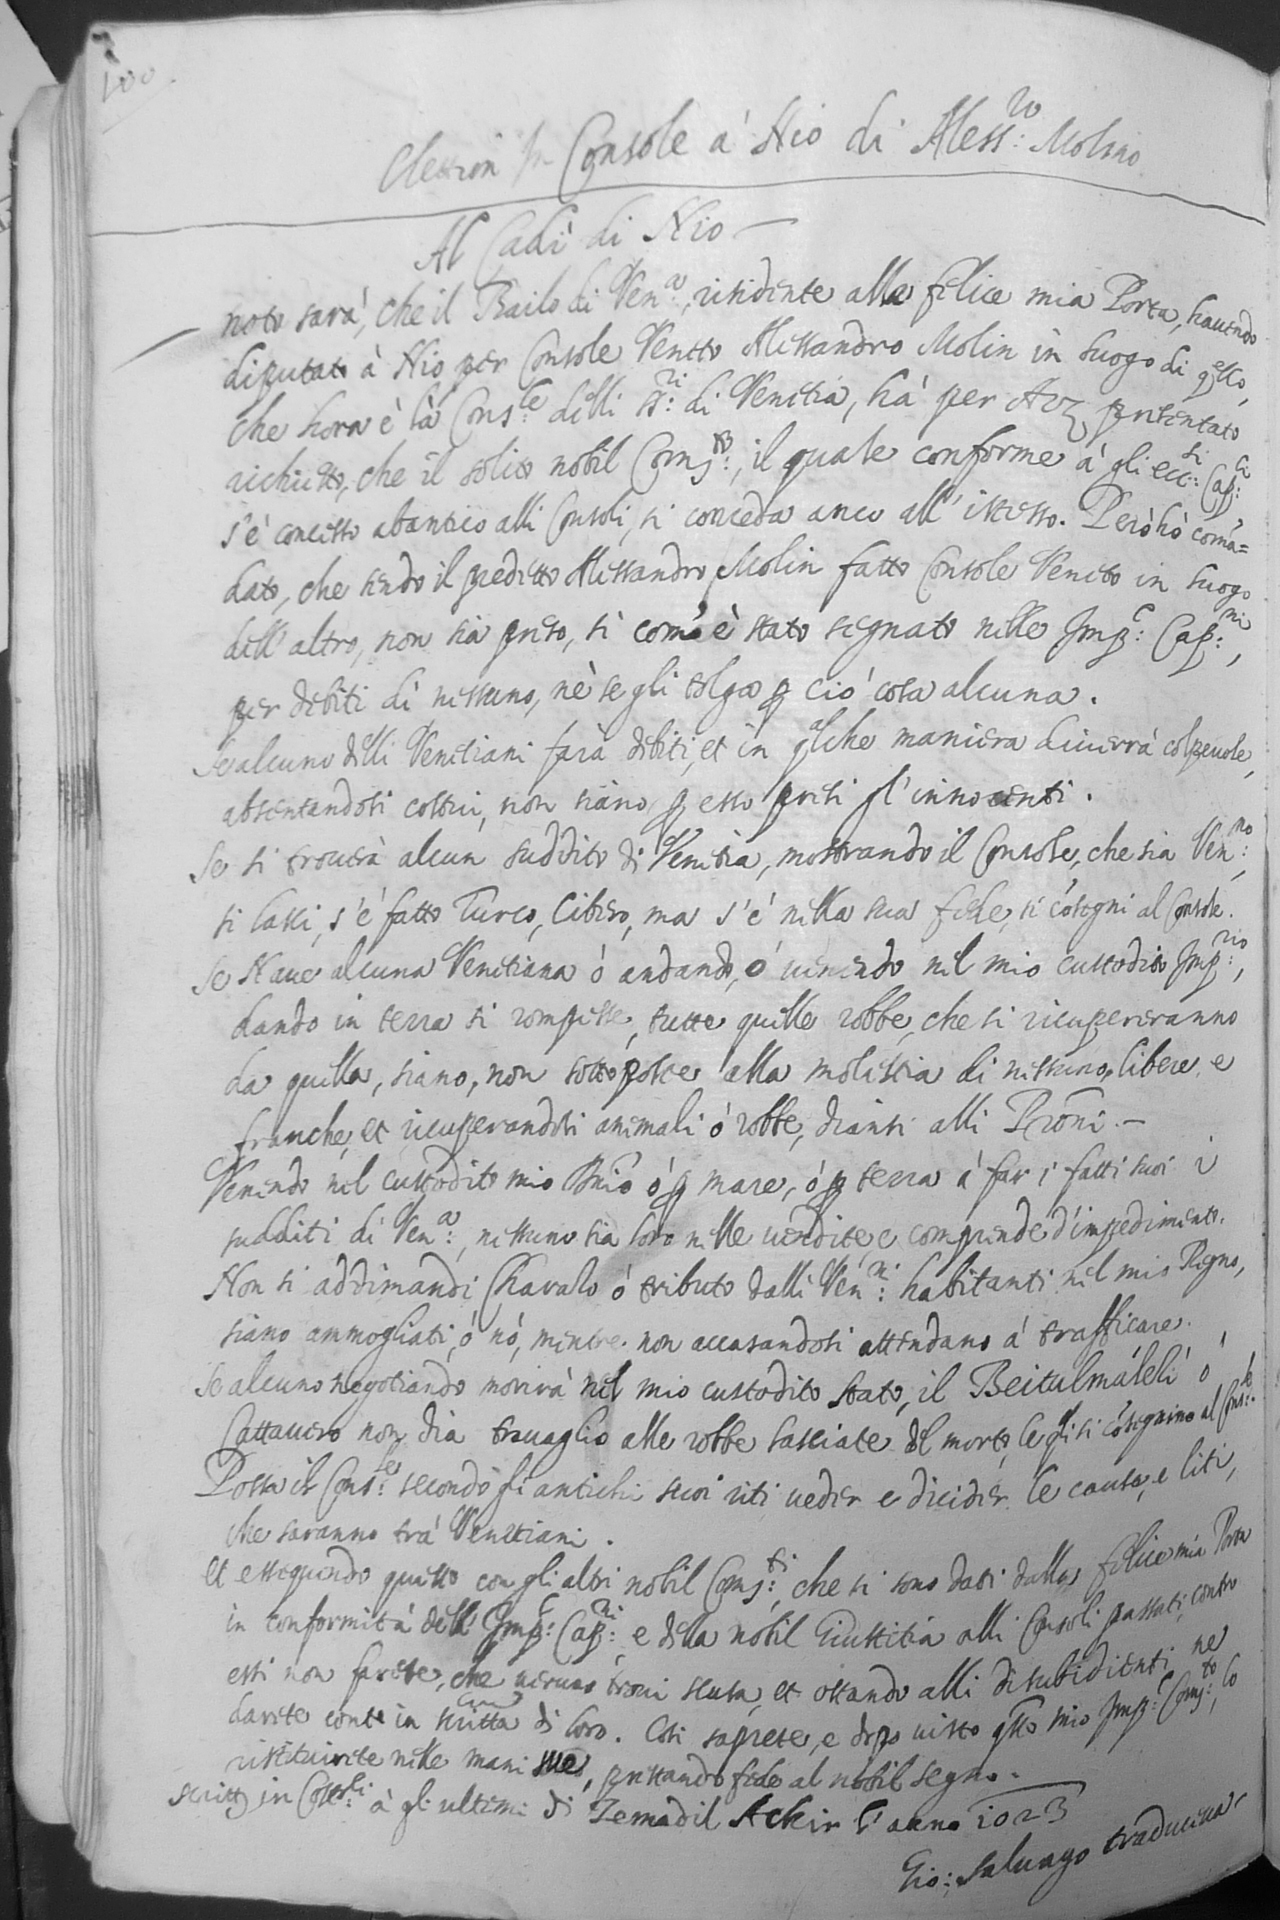 100
Elettion in Console à Nio di Aless:ro Molino
Al Cadì di Nio
noto sarà, che il Bailo di Ven:a, risidente alla felice mia Porta, hauendo
diputato à Nio per Console Veneto Alessandro Molin in luogo di q.ello,
che hora è là Cons:le delli ss:ri di Venetia, hà per Arz presentato
richiesto, che il solito nobil Com:to, il quale conforme à gli ecc:si Cap:li
s'è concesso abantico alli Consoli, si conceda anco all'istesso. Però hò comã=
dato, che sendo il predetto Alessandro Molin fatto Console Veneto in luogo
dell'altro, non sia preso, si come è stato segnato nelle Imp:e Cap:ni,
per debiti di nessuno, nè se gli tolga p ciò cosa alcuna.
Se alcuno delli Venetiani farà debiti, et in qlche maniera diuerrà colpeuole,
absentandosi costui, non siano p esso presi gl'innocenti.
Se si trouerà alcun suddito di Venetia, mostrando il Console, che sia Ven:no,
si lassi, s'è fatto Turco, libero, ma s'è nella sua fede, si cõsegni al Console.
Se Naue alcuna Venetiana ò andando, ò uenendo nel mio custodito Imp:rio,
dando in terra si rompesse, tutte quelle robbe, che si ricupereranno
da quella, siano, non sottoposte alla molestia di nessuno, libere, e
franche, et ricuperandosi animali ò robbe, diansi alli Prõni.
Venendo nel custodito mio Imp̃io ò p mare, ò p terra à far i fatti suoi i
sudditi di Ven:a, nessuno sia loro nelle uendite e comprende d'impedimento.
Non si addimandi Charalo ò tributo dalli Ven:ni habitanti nel mio Regno,
siano ammogliati, ò nò, mentre non accasandosi attendano à trafficare.
Se alcuno negotiando morirà nel mio custodito Stato, il Beitulmáleli ò
Cattauero non dia trauaglio alle robbe lasciate dal morto, le qli si cõsegnino al Cons:le.
Possa il Cons:le secondo gli antichi suoi riti ueder e decider le cause, e liti,
che saranno trà Venetiani.
Et essequendo questo con gli altri nobil Com:ti, che si sono dati dalla felice mia Porta
in conformità delle Imp:e Cap:ni e della nobil Giustitia alli Consoli passati, contro
essi non farete, che ueruno troui scusa, et ostando alli disubidienti ne
darete conto in scritto di loro. Così saprete, e dopo uisto qsto mio Imp:e Com:to, lo
restituirete nelle mani sue, prestando fede al nobil segno.
Scritto in Cost:li à gli ultimi di Zemadil Achir l'anno 1023
Gio: Saluago traduceua